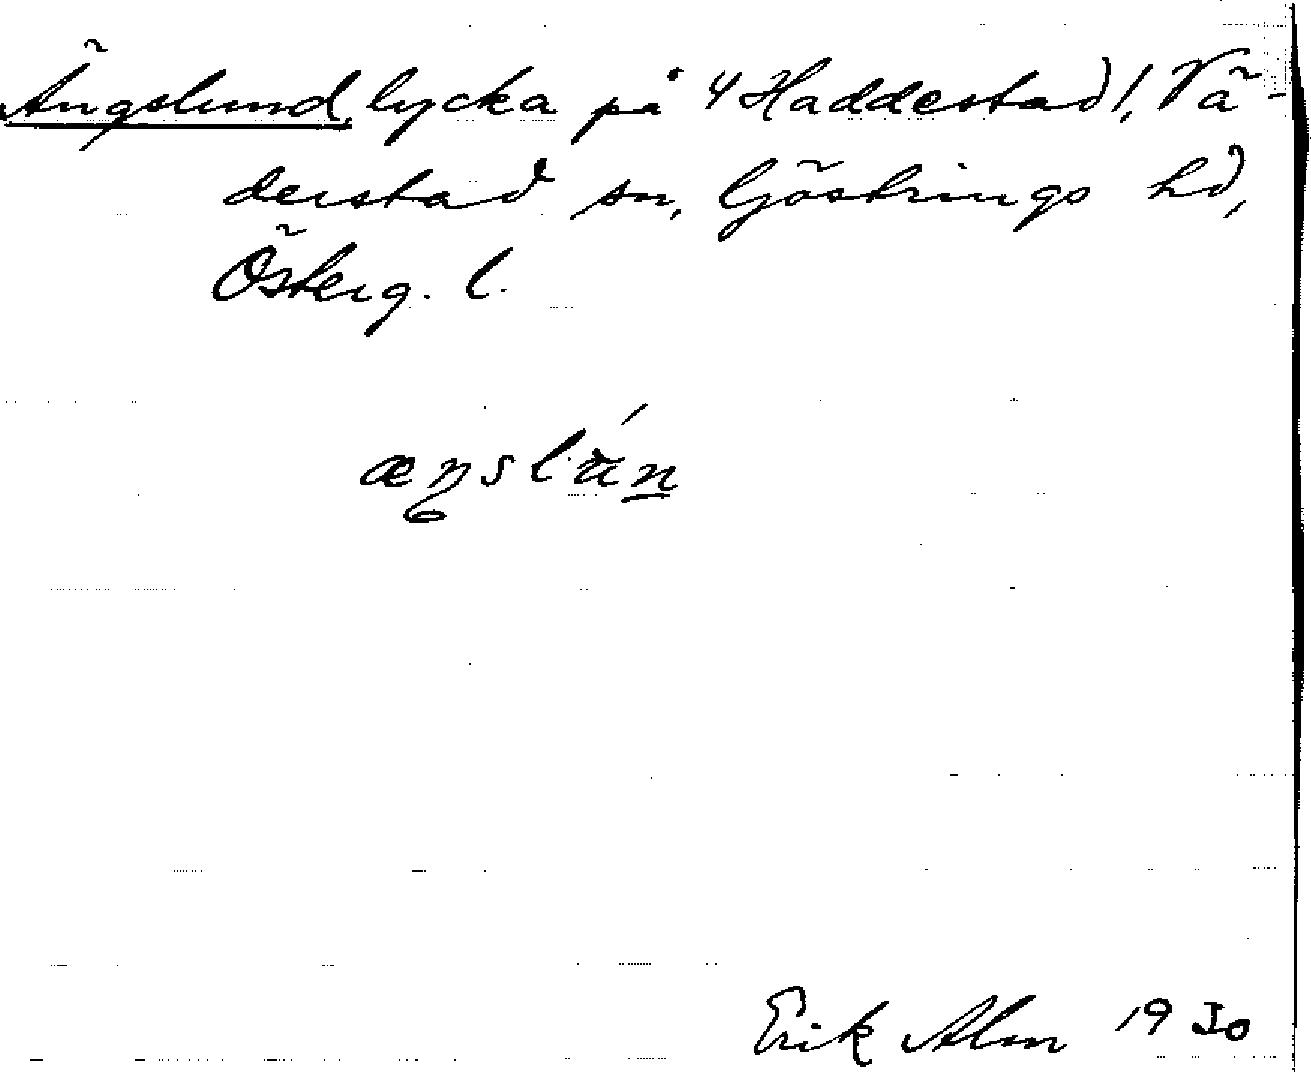 Ängslund, lycka på 4 Haddestad!, Vä-
derstad sn, Göstrings hd,
Österg. l.
æŋslán
Erik Alm 1930